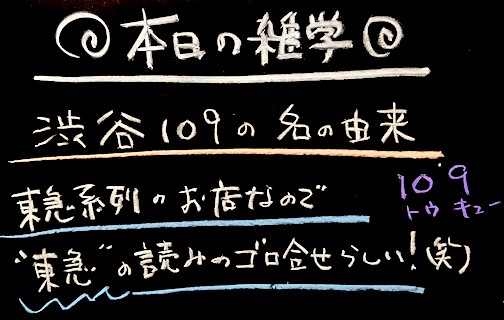 本日の雑学
渋谷109の名の由来
東急系列のお店なので
10 9
トウ キュー
"東急"の読みのゴロ合せらしい!(笑)